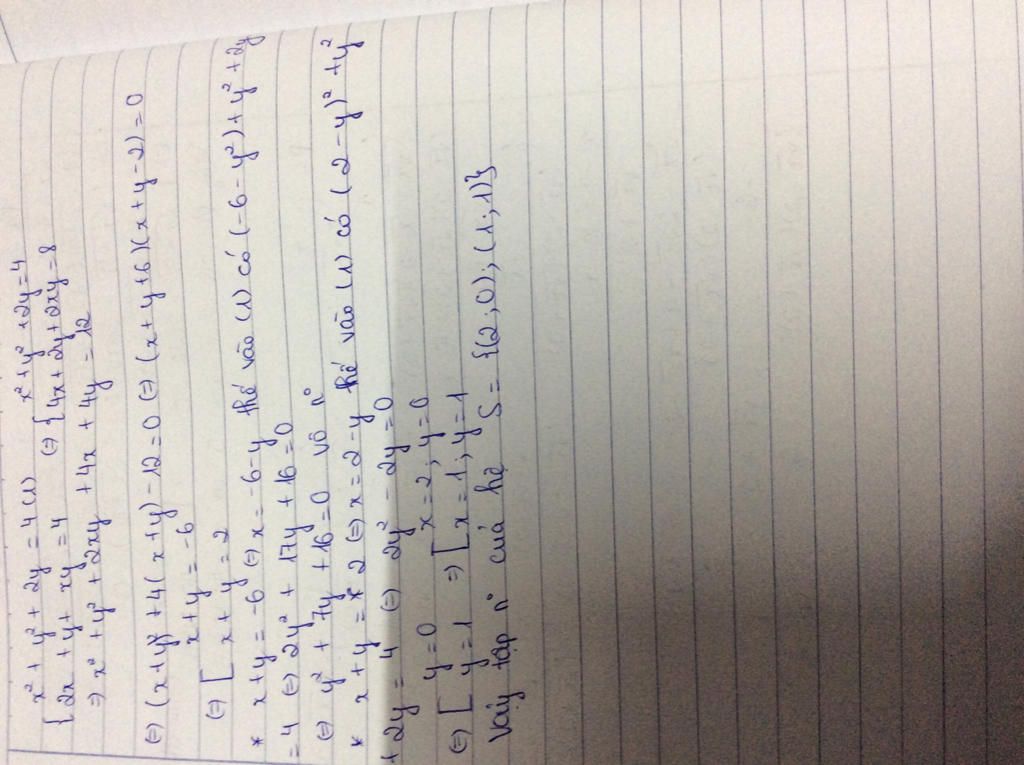 { x² + y² + 2y = 4 (1)      x² + y² + 2y = 4
{ 2x + y + xy = 4      (=) { 4x + 2y + 2xy = 8
=> x² + y² + 2xy + 4x + 4y = 12
(=) (x+y)² + 4(x+y) - 12 = 0 (=) (x+y+6)(x+y-2) = 0
x + y = -6
(=) [ x + y = 2
* x+y = -6 (=) x = -6-y thế vào (1) có (-6-y²) + y² + 2y
= 4 (=) 2y² + 17y + 16 = 0
(=) y² + 7y + 16 = 0 vô n°
* x + y = 2 (=) x = 2-y thế vào (1) có (2-y)² + y²
+ 2y = 4 (=) 2y² - 2y = 0
y = 0      x = 2 ; y = 0
(=) [ y = 1   => [ x = 1 ; y = 1
Vậy tập n° của hệ S = {(2;0);(1;1)}